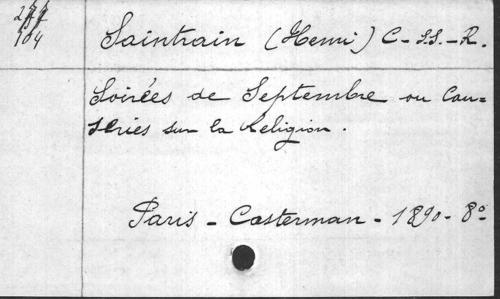 104
Saintrain (Henri) C-S.S.-R.
Soirées de Septembre ou Cau=
series sur la Religion.
Paris - Casterman - 1890 - 8º